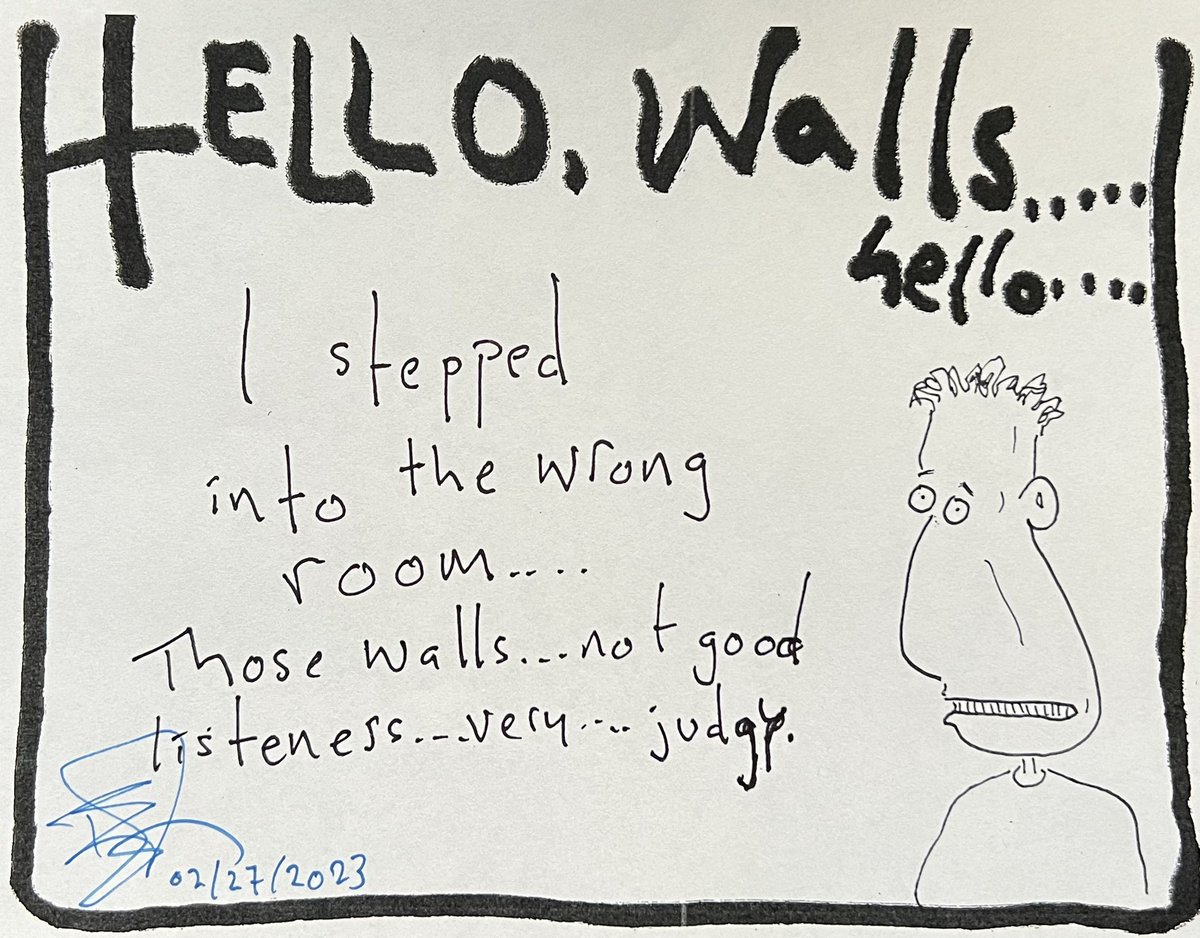 HELLO, Walls.....
hello....
I stepped
into the wrong
room....
Those walls...not good
listeness...very...judgy.
02/27/2023